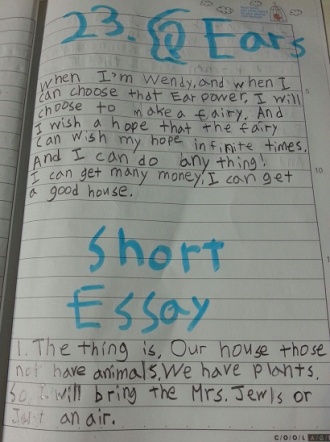 23. Ears
When I'm Wendy, and when I
can choose that Ear power, I will
choose to make a fairy. And
I wish a hope that the fairy
can wish my hope infinite times.
And I can do any thing!
I can get many money, I can get
a good house.
Short
Essay
1. The thing is, Our house those
not have animals. We have plants.
So, I will bring the Mrs. Jewls or
Just an air.
COOL